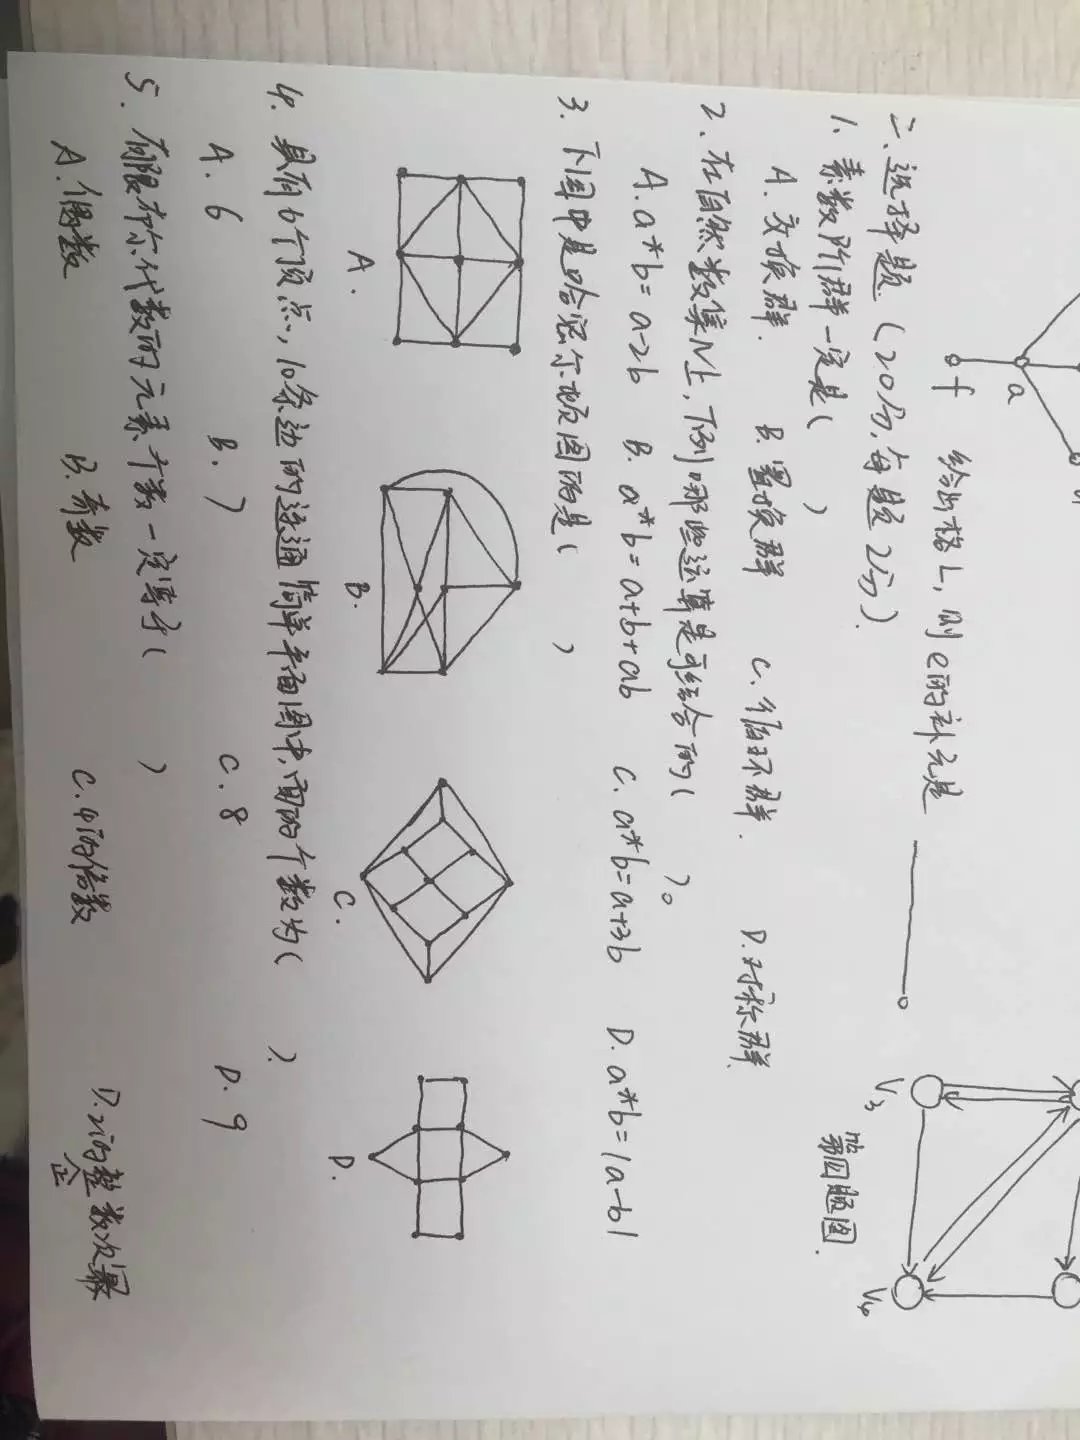 d
a
f 给出格L,则e的补元是
V3 V4
第四题图.
二、选择题.(20分,每题2分).
1、素数阶群一定是( )
A.交换群. B.置换群 C.循环群. D.对称群.
2、在自然数集N上,下列哪些运算是可结合的( )。
A.a*b=a-2b B.a*b=a+b+ab C.a*b=a+3b D.a*b=|a-b|
3.下图中是哈密尔顿图的是( )
A. B. C. D.
4.具有6个顶点,10条边的连通简单平面图中,面的个数为( ).
A.6 B.7 C.8 D.9
5.有限布尔代数的元素个数一定等于( )
A.偶数 B.奇数 C.4的倍数 D.2的整数次幂
正